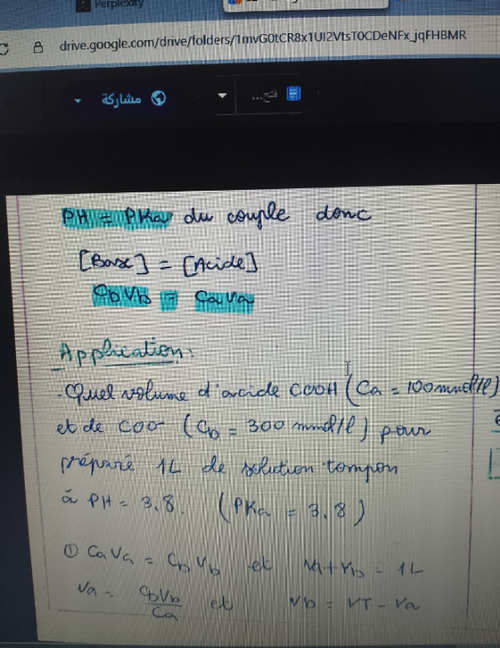 Perplexity
drive.google.com/drive/folders/1mvG0tCR8x1UI2VtsT0CDeNFx_jqFHBMR
مشاركة
فتح...
PH = PKa du couple donc
[Base] = [Acide]
CbVb = CaVa
Application:
- Quel volume d'acide COOH (Ca = 100mmol/l)
et de COO⁻ (Cb = 300 mmol/l) pour
préparé 1L de solution tompon
à PH = 3.8. (PKa = 3,8)
① CaVa = CbVb et Va+Vb = 1L
Va = CbVb/Ca et Vb = VT - Va